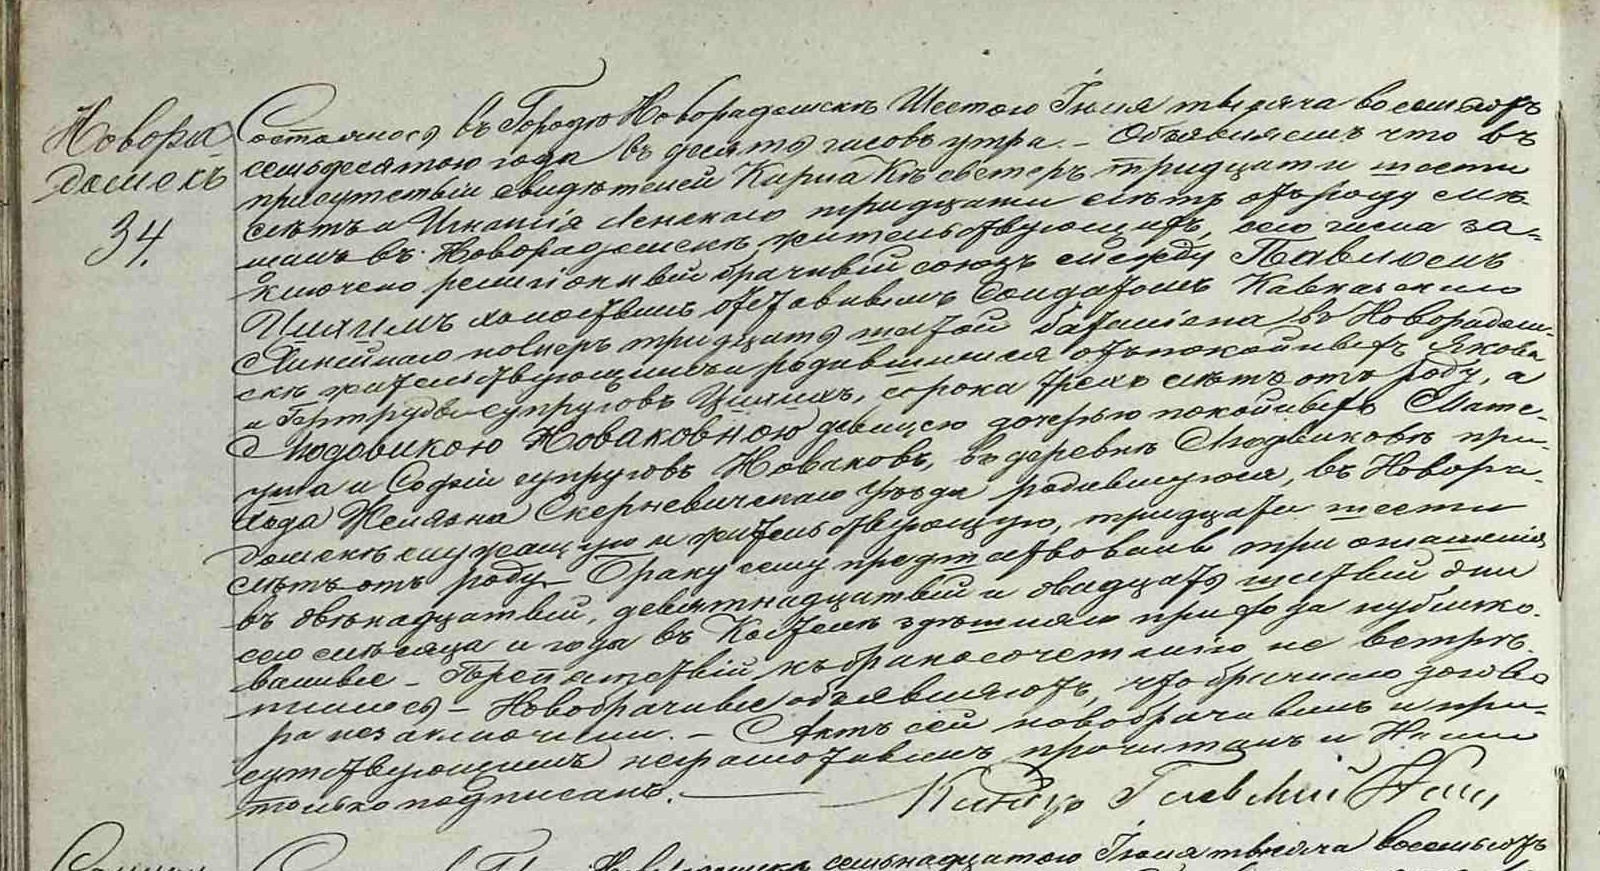 Новора-
домскъ
34.
Состоялось въ Городѣ Новорадомскѣ Шестаго Іюля тысяча восемьсотъ
семьдесятого года въ десять часовъ утра. – Объявляемъ что въ
присутствіи свидѣтелей Кирла тридцати шести
лѣтъ и Игнатія Ленскаго тридцати лѣтъ отъ роду мѣ-
щанъ въ Новорадомскѣ жительствующихъ, сего числа за-
ключено религіозный брачный союзъ между Павломъ
холостымъ отставнымъ Солдатомъ Кавказскаго
Линейнаго номеръ тридцать баталіона въ Новорадом-
скѣ жительствующимъ родившимся отъ покойныхъ Якова
и Гертруды супруговъ сорока трехъ лѣтъ отъ роду, а
Людовикою Новаковною девицею дочерью покойныхъ Мате-
уша и Софіи супруговъ Новаковъ, въ деревнѣ Людвиковѣ при-
хода Желязна Скерневичскаго уѣзда родившуюся, въ Новора-
домскѣ служащую и жительствующую, тридцати шести
лѣтъ отъ роду. – Браку сему предшествовали три оглашенія
въ двѣнадцатый, девятнадцатый и двадцать шестый дни
сего мѣсяца и года въ Костелѣ здѣшняго прихода публико-
ванные – Препятствій къ бракосочетанію не встрѣ-
тилось – Новобрачные объявляютъ, что брачнаго догово
ра не заключили. – Актъ сей новобрачнымъ и при-
сутствующимъ неграмотнымъ прочитанъ и Нами
только подписанъ.
Ксендзъ
Состоялось въ Новорадомскѣ семьнадцатаго Іюля тысяча восемьсотъ